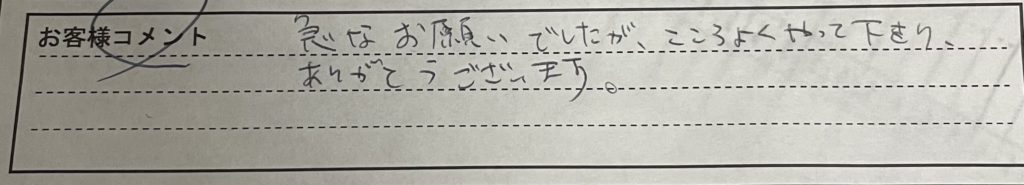 お客様コメント 急なお願いでしたが、こころよくやって下さり、
ありがとうございます。